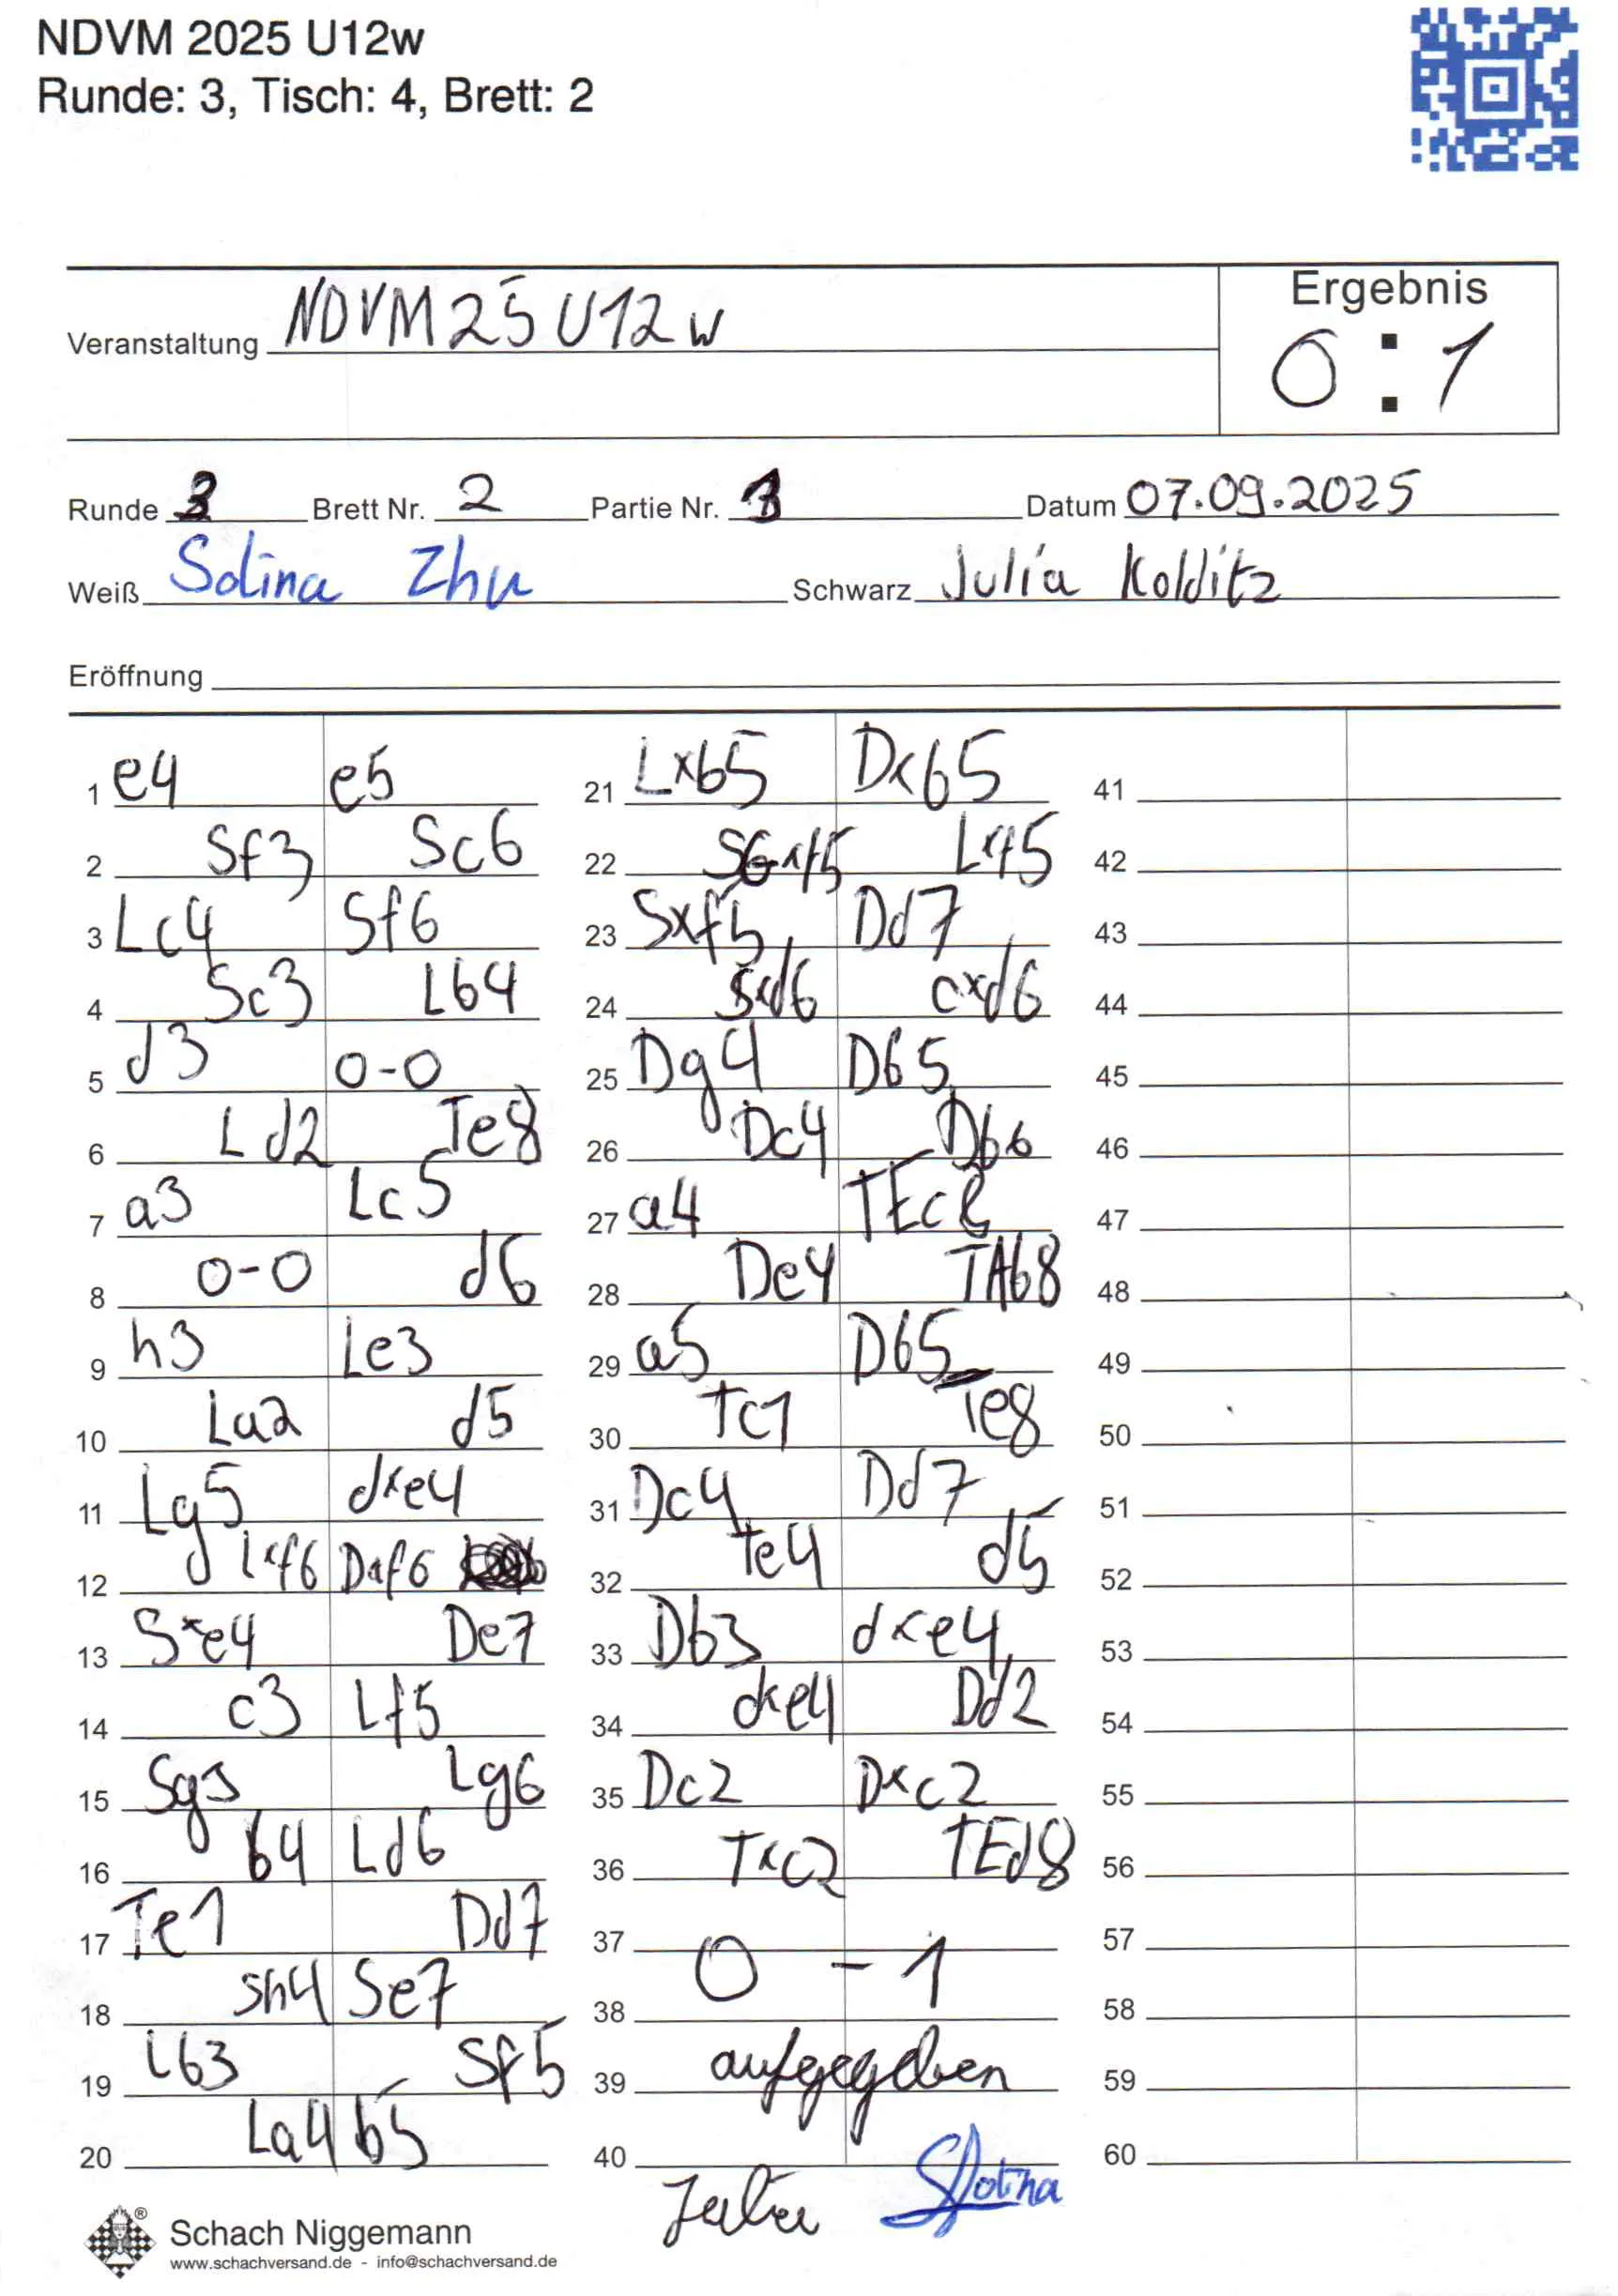 NDVM 2025 U12w
Runde: 3, Tisch: 4, Brett: 2
Veranstaltung NDVM 25 U12w
Ergebnis
0 : 1
Runde 3 Brett Nr. 2 Partie Nr. 1 Datum 07.09.2025
Weiß Solina Zhu Schwarz Julia Kolditz
Eröffnung
1 e4 e5
2 Sf3 Sc6
3 Lc4 Sf6
4 Sc3 Lb4
5 d3 0-0
6 Ld2 Te8
7 a3 Lc5
8 0-0 d6
9 h3 Le3
10 La2 d5
11 Lg5 dxe4
12 Lxf6 Dxf6
13 Sxe4 De7
14 c3 Lf5
15 Sg3 Lg6
16 b4 Ld6
17 Te1 Dd7
18 Sh4 Se7
19 Lb3 Sf5
20 La4 b5
21 Lxb5 Dxb5
22 SGxf5 Lxf5
23 Sxf5 Dd7
24 Sxd6 cxd6
25 Dg4 Db5
26 Dc4 Db6
27 a4 TEc8
28 De4 TAb8
29 a5 Db5
30 Tc1 Te8
31 Dc4 Dd7
32 Te4 d5
33 Db3 dxe4
34 dxe4 Dd2
35 Dc2 Dxc2
36 Txc2 TEd8
37
0 - 1
38
39 aufgegeben
40
Julia Solina
41
42
43
44
45
46
47
48
49
50
51
52
53
54
55
56
57
58
59
60
Schach Niggemann
www.schachversand.de - info@schachversand.de